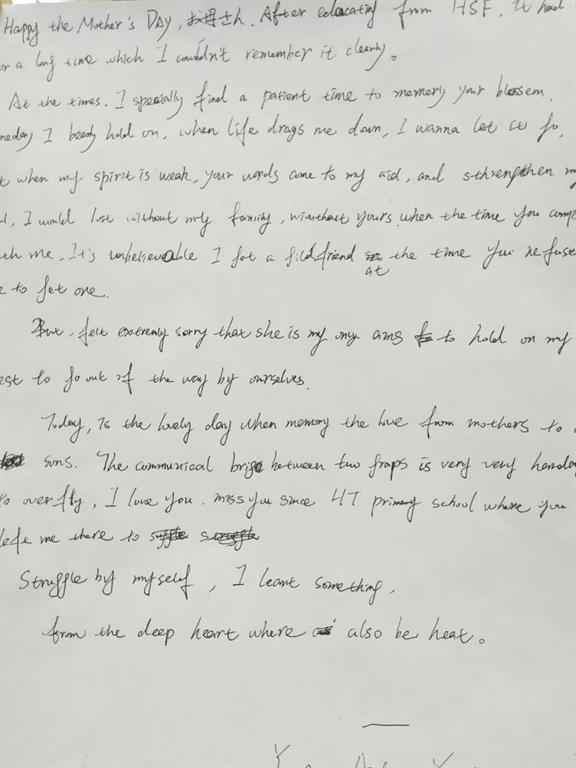 Happy the Mother's DAY, お母さん. After educating from HSF. It had
or a long time which I couldn't remember it clearly。
At the times. I specially find a patient time to memery your blossem.
meday I beedy hold on, when life drags me down, I wanna let it go,
t when my spirit is weak, your words come to my aid, and sthrengthen my
I would lost without my family, winthout yours. when the time you
th me. It's unbelieveable I got a girlfriend at the time you refuse
e to get one.
But. felt extremly sorry that she is my ony ams to hold on my
est to go out of the way by ourselves.
Today, Is the lovely day when memory the love from mothers to
sons. The communical brige between two graps is very very
o overfly, I love you. miss you since 4T primery school where you
left me there to
Struggle by myself, I leant something.
from the deep heart where also be heat。